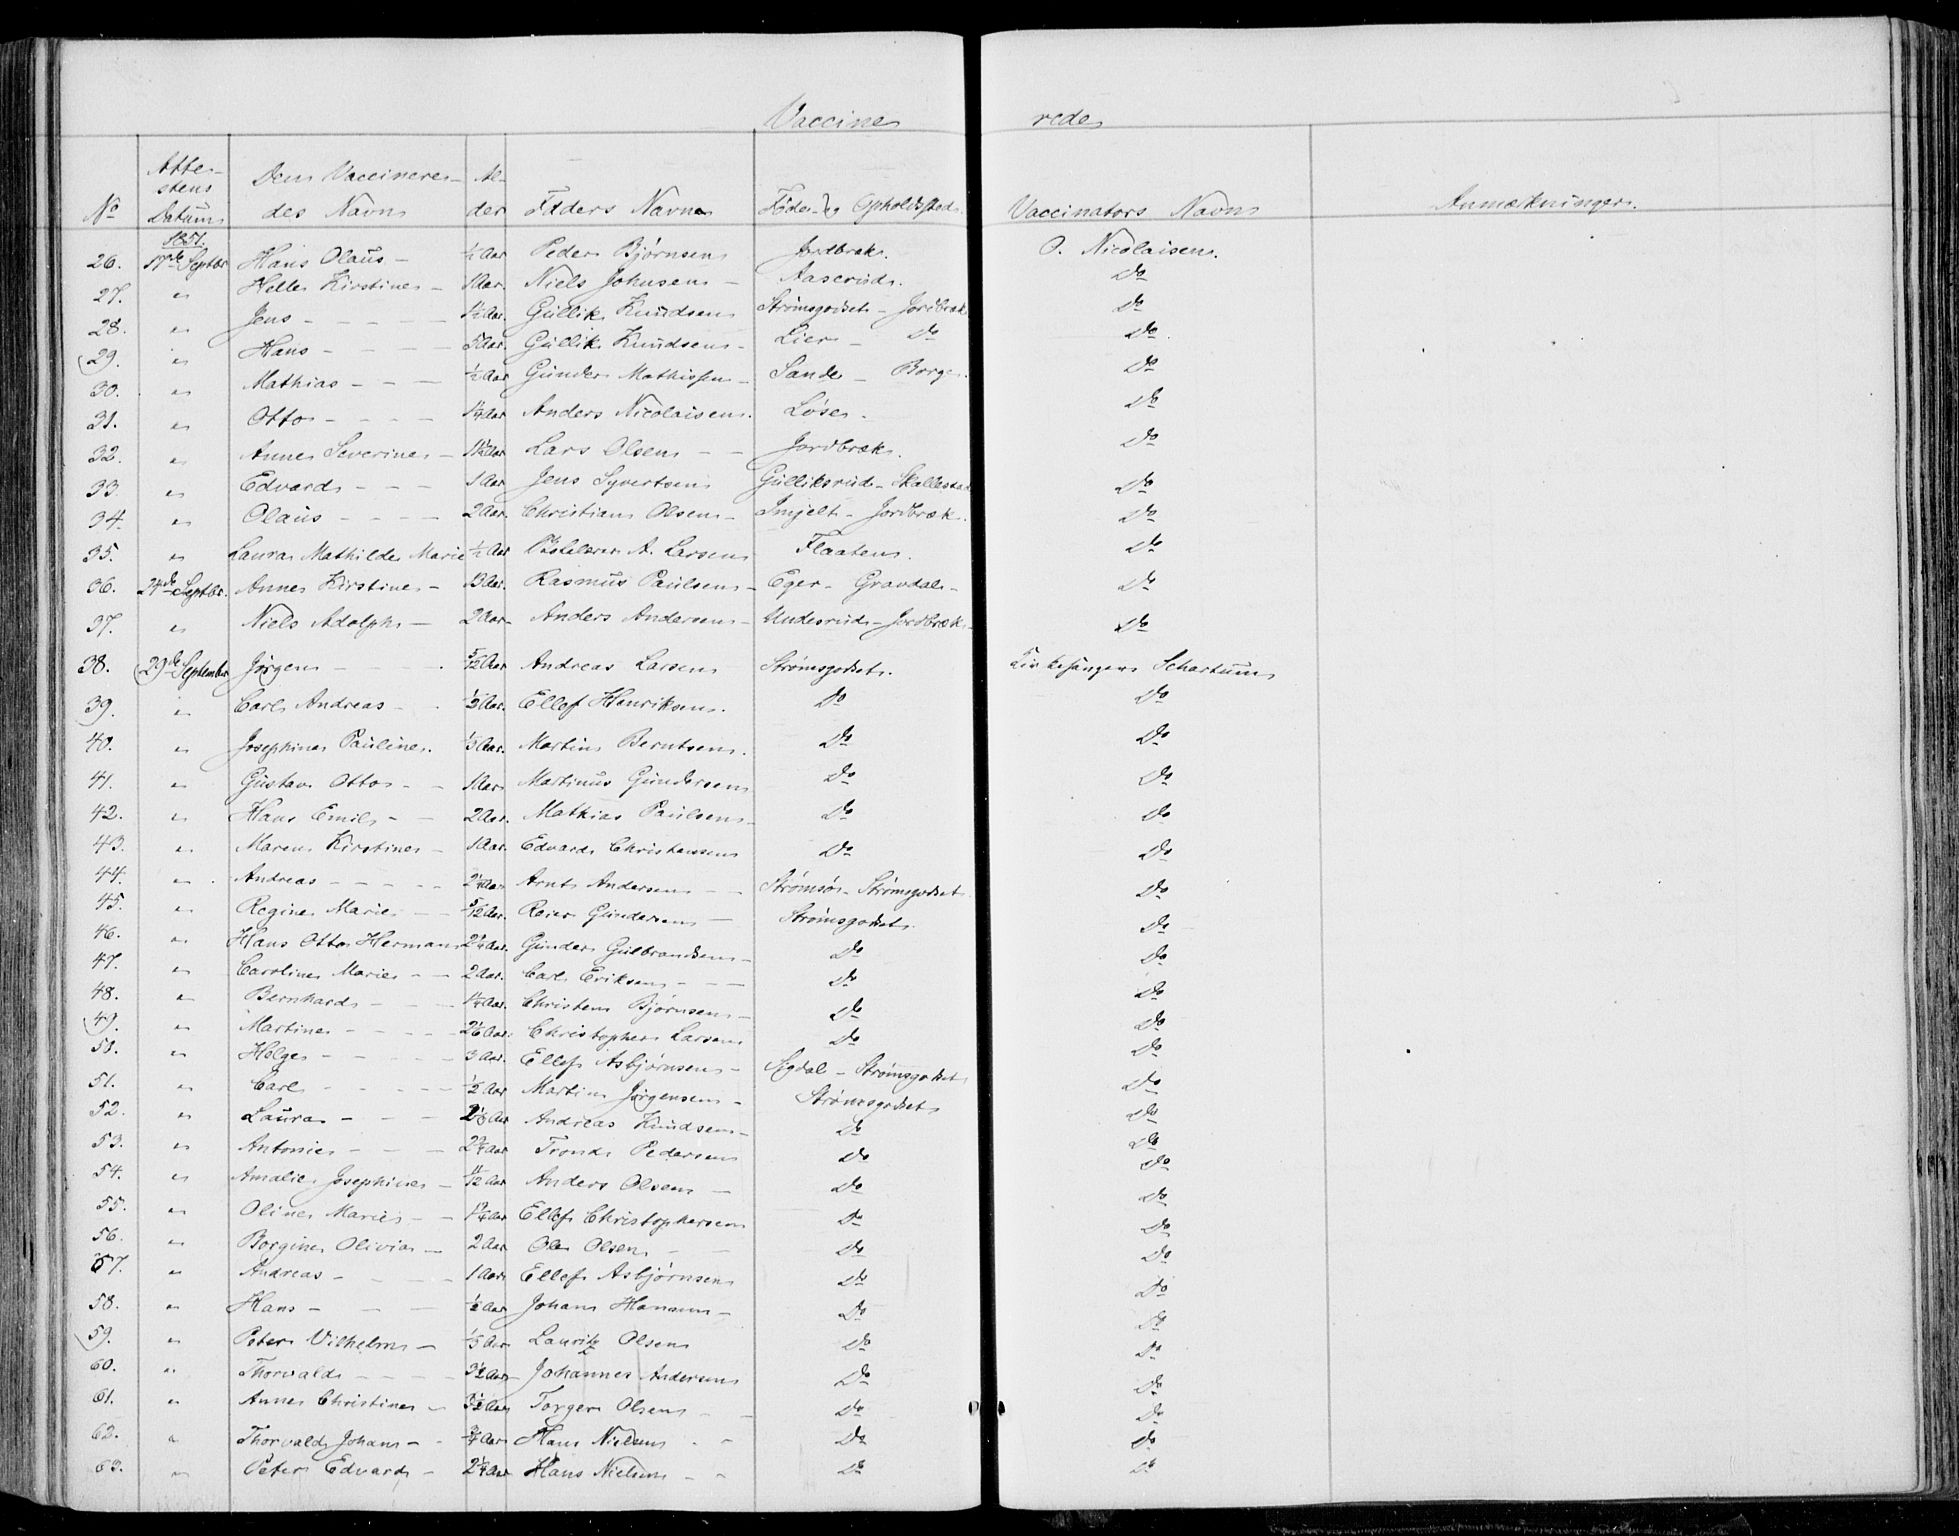 Vaccine rede
No Attestens Datum Den Vaccineredes Navn Alder Faders Navn Føde- og Opholdssted Vaccinators Navn Anmærkninger.
1851.
26. 17de Septbr Hans Olaus - ½ Aar Peder Bjørnsen Jordbræk. O. Nicolaisen.
27. " Helle Kirstine - 1 Aar. Niels Johnsen - Aaserud. Do
28. " Jens - - - - 1½ Aar. Gullik Knudsen Strømsgodset - Jordbræk Do
29. " Hans - - - - 5 Aar. Gullik Knudsen - Lier - Do Do
30. " Mathias - - - ½ Aar Gunder Mathissen - Sande - Borge. Do
31. " Otto - - - - 1¼ Aar Anders Nicolaisen. Løse. Do
32. " Anne Severine - Lars Olsen - - Jordbræk. Do
33. " Edvard - - - 1 Aar Jens Syvertsen Gulliksrud - Skallestad Do
34. " Olaus - - - - 2 Aar. Christian Olsen - Imjelt - Jordbræk. Do
35. " Laura Mathilde Marie ½ Aar A. Larsen Flaaten. Do
36. 24de Septbr. Anne Kirstine - 13 Aar. Rasmus Paulsen - Eger - Gravdal - Do
37. " Niels Adolph - 2 Aar - Anders Andersen - Underud - Jordbræk - Do
38. 29de September Jørgen - - - 5/12 Aar Andreas Larsen Strømsgodset. Kirkesanger Schartum
39. " Carl Andreas - - ½ Aar. Ellef Henriksen. Do Do
40. " Josephine Pauline. ⅓ Aar. Martin Berntsen. Do Do
41. " Gustav Otto - - 1 Aar Martinus Gundersen Do Do
42. " Hans Emil - - 2 Aar. Mathias Paulsen - Do Do
43. " Maren Kirstine - 1 Aar. Edvard Christensen Do Do
44. " Andreas - - - - 2¼ Aar. Arnt Andersen - - Strømsø - Strømsgodset. Do
45. " Regine Marie - - 5/12 Aar. Reier Gundersen - Strømsgodset. Do
46. " Hans Otto Herman 2¼ Aar. Gunder Gulbrandsen - Do Do
47. " Caroline Marie - - 2 Aar. Carl Eriksen - - - Do Do
48. " Bernhard - - - 1¼ Aar. Christen Bjørnsen - Do Do
49. " Martine - - - - 2⅙ Aar. Christopher Larsen Do Do
50. " Helge - - - - 3 Aar. Ellef Asbjørnsen - Sigdal - Strømsgodset Do
51. " Carl - - - - ½ Aar Martin Jørgensen - Strømsgodset Do
52. " Laura - - - Andreas Knudsen - Do Do
53. " Antonie - - - 2¾ Aar Trond Pedersen Do Do
54. " Amalie Josephine - 11/12 Aar Anders Olsen - Do Do
55. " Oline Marie - - 1¾ Aar Ellef Christophersen Do Do
56. " Borgine Olivia - 2 Aar Ole Olsen - - Do Do
57. " Andreas - - - - 1 Aar Ellef Asbjørnsen Do Do
58. " Hans - - - ½ Aar Johan Hansen - Do Do
59. " Peter Vilhelm - ⅓ Aar Lauritz Olsen Do Do
60. " Thorvald - - - - 3½ Aar Johannes Andersen Do Do
61. " Anne Christine - 3½ Aar Torger Olsen - - Do Do
62. " Thorvald Johan - - ¾ Aar Hans Nielsen - - Do Do
63. " Peter Edvard - 2¼ Aar Hans Nielsen - - Do Do